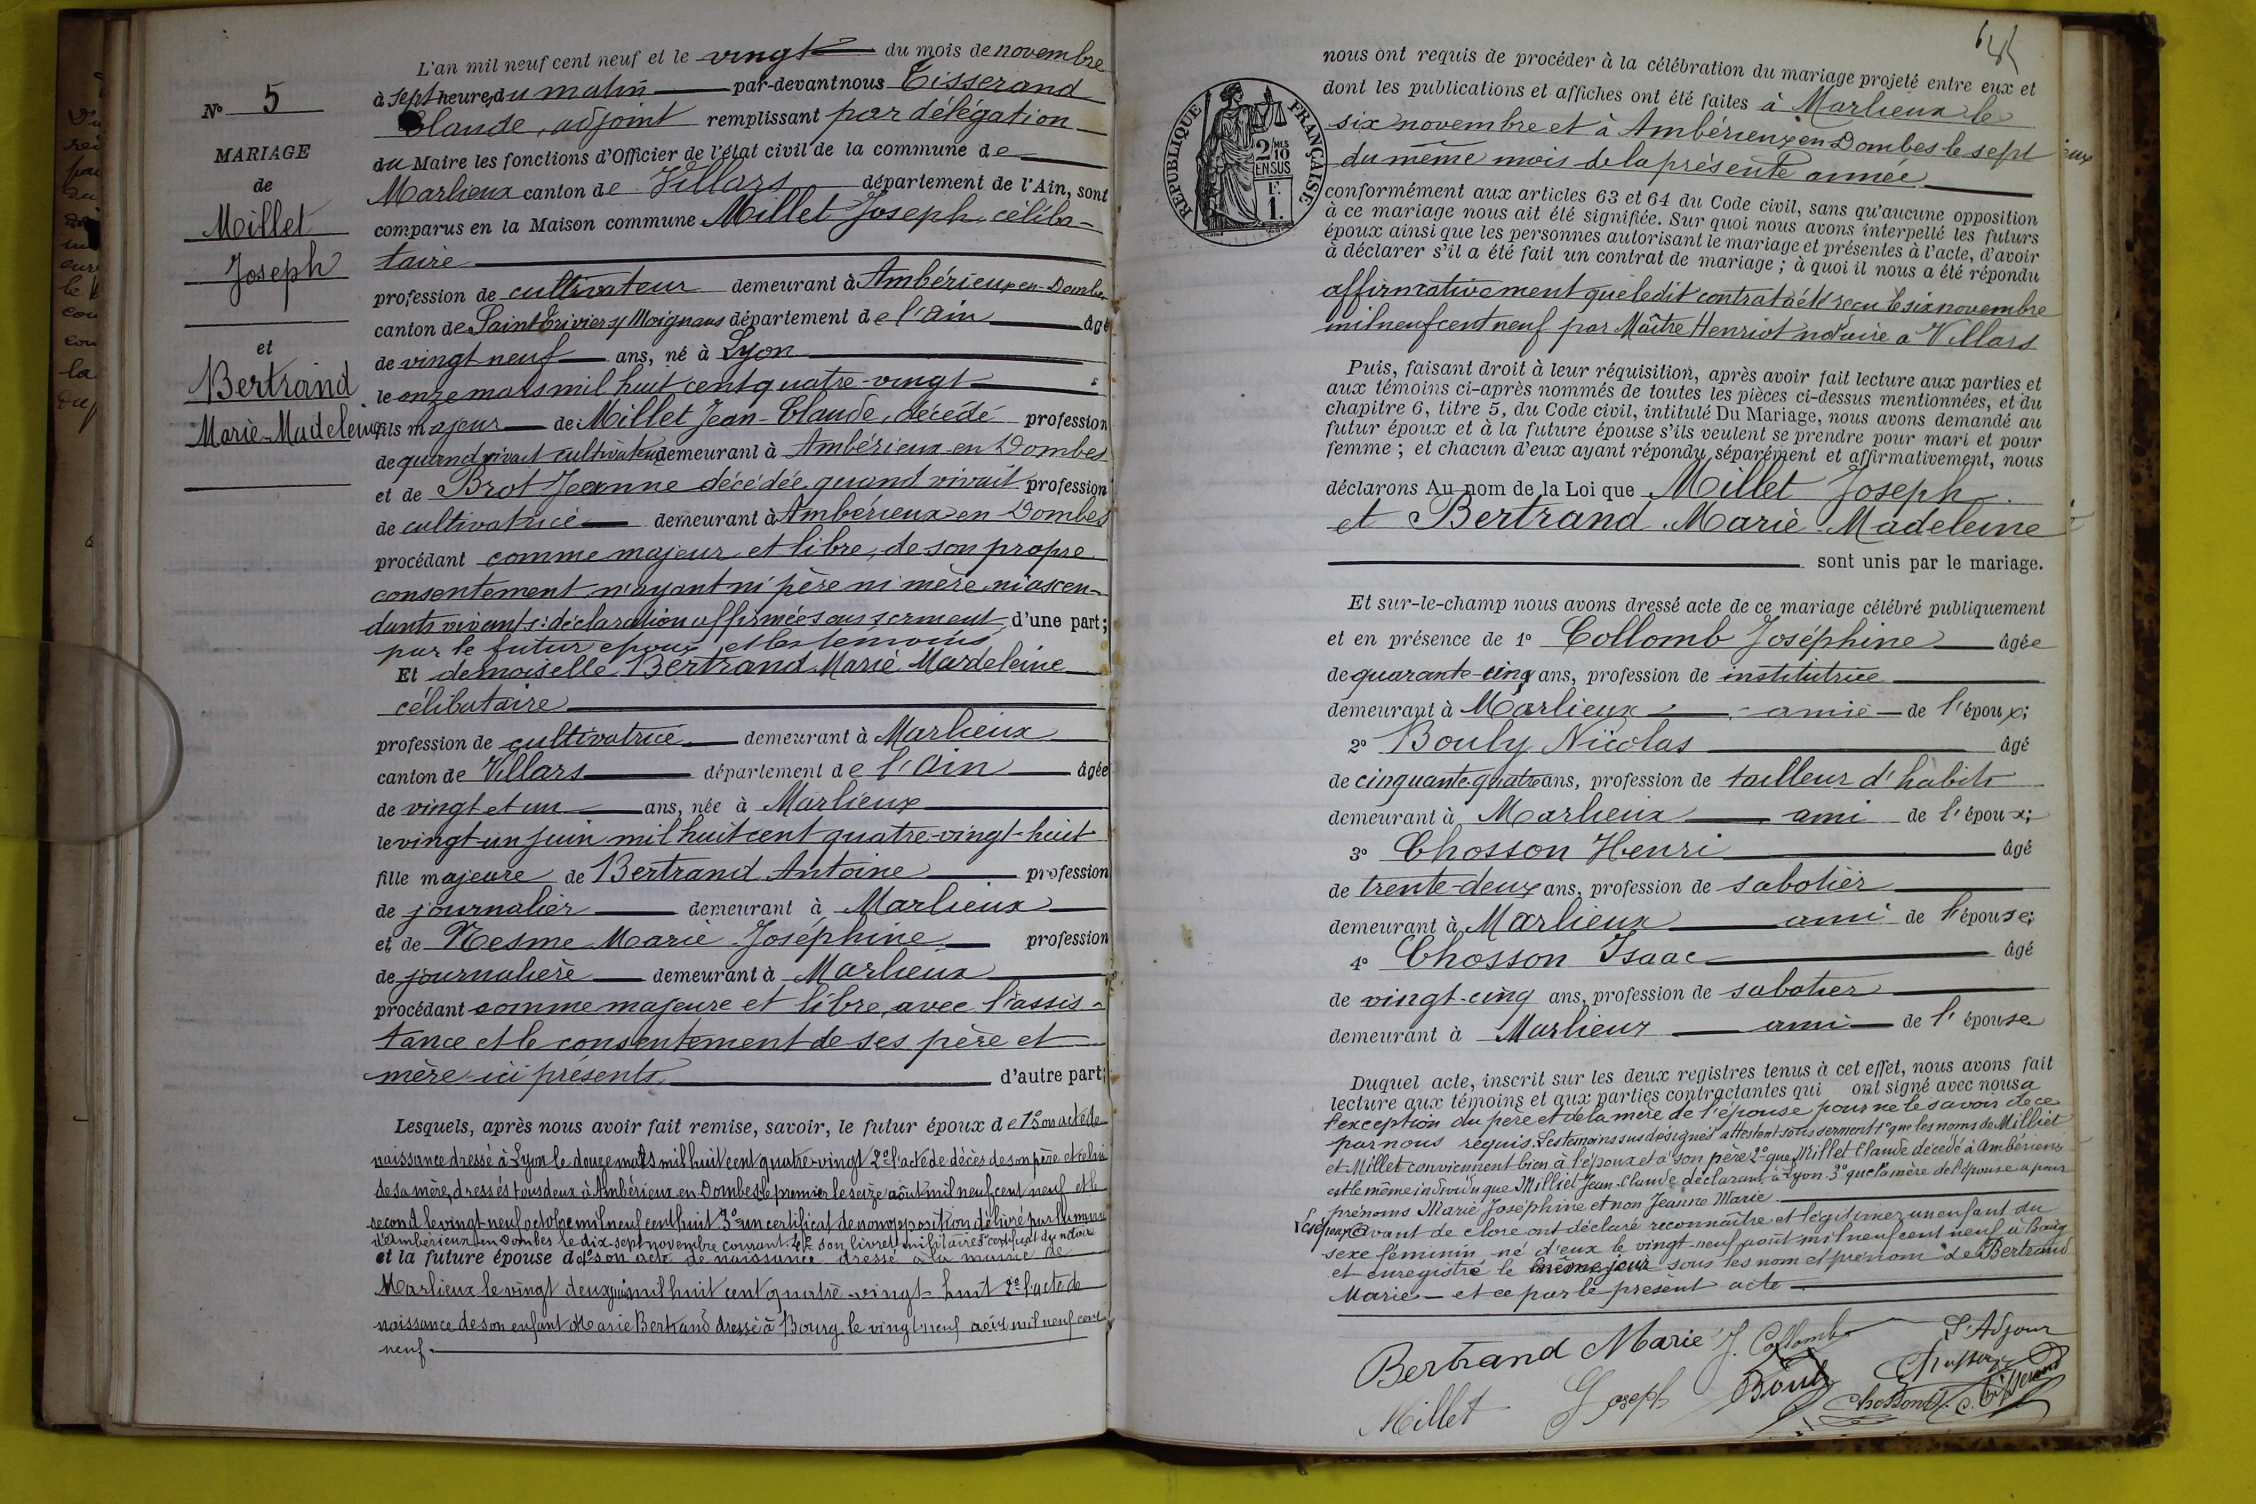 N° 5
MARIAGE
de
Millet
Joseph
et
Bertrand
Marie-Madeleine
L'an mil neuf cent neuf et le vingt du mois de novembre
à sept heures du matin par-devant nous Tisserand
Claude, adjoint remplissant par délégation
du Maire les fonctions d'Officier de l'état civil de la commune de
Marlieux canton de Villars département de l'Ain, sont
comparus en la Maison commune Millet Joseph, céliba-
taire
profession de cultivateur demeurant à Ambérieux-en-Dombes
canton de Saint Trivier s/ Moignans département de l'Ain âgé
de vingt neuf ans, né à Lyon
le onze mars mil huit cent quatre-vingt
fils majeur de Millet Jean-Claude, décédé profession
de quand vivait cultivateur demeurant à Ambérieux-en-Dombes
et de Brot Jeanne décédée quand vivait profession
de cultivatrice demeurant à Ambérieux en Dombes
procédant comme majeur et libre, de son propre
consentement n'ayant ni père ni mère ni ascen-
dants vivants: déclaration affirmée sous serment d'une part;
par le futur époux et les témoins
Et demoiselle Bertrand Marie Mardeleine
célibataire
profession de cultivatrice demeurant à Marlieux
canton de Villars département de l'Ain âgée
de vingt et un ans, née à Marlieux
le vingt-un juin mil huit cent quatre-vingt-huit
fille majeure de Bertrand Antoine profession
de journalier demeurant à Marlieux
et de Nesme Marie Joséphine profession
de journalière demeurant à Marlieux
procédant comme majeure et libre, avec l'assis-
tance et le consentement de ses père et
mère ici présents d'autre part;
Lesquels, après nous avoir fait remise, savoir, le futur époux de 1° son acte de
naissance dressé à Lyon le douze mars mil huit cent quatre-vingt 2° l'acte de décès de son père et celui
de sa mère, dressés tous deux à Ambérieux en Dombes, le premier le seize août mil neuf cent neuf et le
second le vingt-neuf octobre mil neuf cent huit 3° un certificat de non opposition délivré par la mairie
d'Ambérieux en Dombes le dix-sept novembre courant. 4° son livret militaire 5° certificat du notaire
et la future épouse de 1° son acte de naissance dressé à la mairie de
Marlieux le vingt deux juin mil huit cent quatre-vingt-huit 2° l'acte de
naissance de son enfant Marie Bertrand dressé à Bourg le vingt neuf août mil neuf cent
neuf.
RÉPUBLIQUE FRANÇAISE
2/10 EN SUS
1 F.
nous ont requis de procéder à la célébration du mariage projeté entre eux et
dont les publications et affiches ont été faites à Marlieux le
six novembre et à Ambérieux en Dombes le sept
du même mois de la présente année
conformément aux articles 63 et 64 du Code civil, sans qu'aucune opposition
à ce mariage nous ait été signifiée. Sur quoi nous avons interpellé les futurs
époux ainsi que les personnes autorisant le mariage et présentes à l'acte, d'avoir
à déclarer s'il a été fait un contrat de mariage; à quoi il nous a été répondu
affirmativement que ledit contrat a été reçu le six novembre
mil neuf cent neuf par Maître Henriot notaire a Villars
Puis, faisant droit à leur réquisition, après avoir fait lecture aux parties et
aux témoins ci-après nommés de toutes les pièces ci-dessus mentionnées, et du
chapitre 6, titre 5, du Code civil, intitulé Du Mariage, nous avons demandé au
futur époux et à la future épouse s'ils veulent se prendre pour mari et pour
femme; et chacun d'eux ayant répondu séparément et affirmativement, nous
déclarons Au nom de la Loi que Millet Joseph
et Bertrand Marie Madeleine
sont unis par le mariage.
Et sur-le-champ nous avons dressé acte de ce mariage célébré publiquement
et en présence de 1° Collomb Joséphine âgée
de quarante-cinq ans, profession de institutrice
demeurant à Marlieux amie de l'époux;
2° Bouly Nicolas âgé
de cinquante-quatre ans, profession de tailleur d'habits
demeurant à Marlieux ami de l'époux;
3° Chosson Henri âgé
de trente-deux ans, profession de sabotier
demeurant à Marlieux ami de l'épouse;
4° Chosson Isaac âgé
de vingt-cinq ans, profession de sabotier
demeurant à Marlieux ami de l'épouse
Duquel acte, inscrit sur les deux registres tenus à cet effet, nous avons fait
lecture aux témoins et aux parties contractantes qui ont signé avec nous a
l'exception du père et de la mère de l'épouse pour ne le savoir de ce
par nous requis. Les témoins sus désignés attestent sous serment 1° que les noms de Milliet
et Millet conviennent bien à l'époux et à son père 2° que Millet Claude décédé à Ambérieux
est le même individu que Milliet Jean-Claude déclarant à Lyon 3° que la mère de l'épouse a pour
prénoms Marie Joséphine et non Jeanne Marie
Les époux avant de clore ont déclaré reconnaître et légitimer un enfant du
sexe féminin né d'eux le vingt-neuf août mil neuf cent neuf à Bourg
et enregistré le même jour sous les nom et prénom de Bertrand
Marie et ce par le présent acte
Bertrand Marie J. Collomb L'Adjoint
Millet Joseph Bouly Chosson C. Tisserand